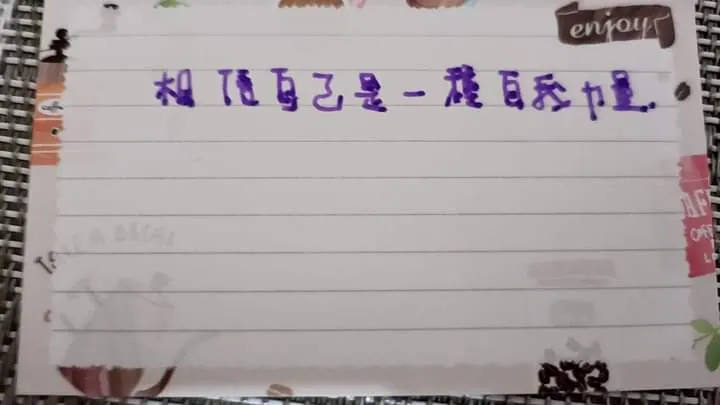 enjoy
相信自己是一種自我力量.